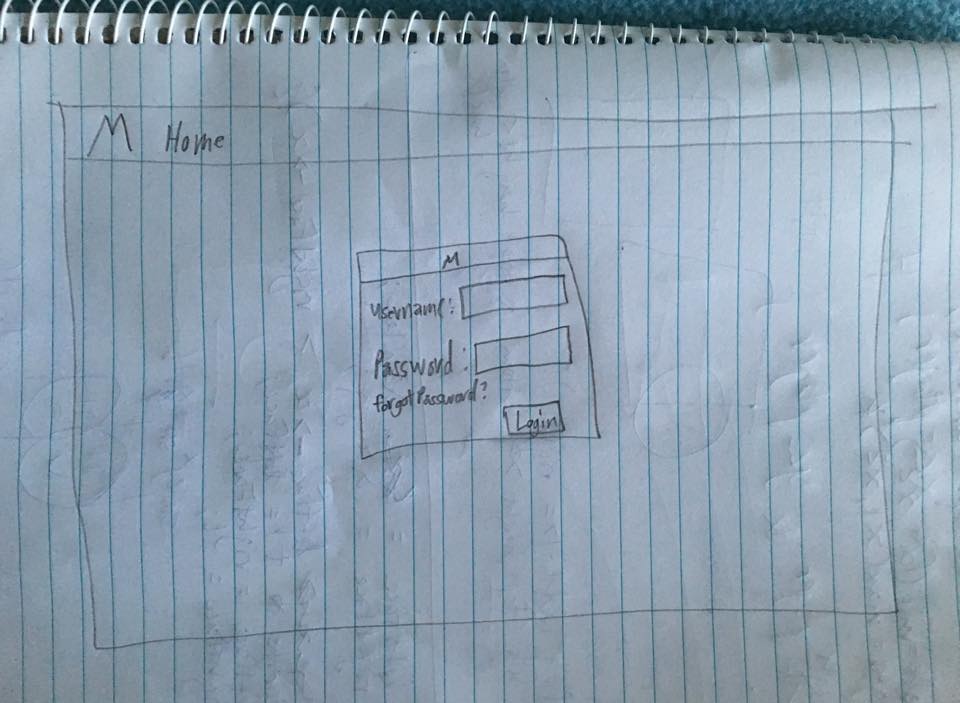 M Home
M
username:
Password:
forgot Password?
Login